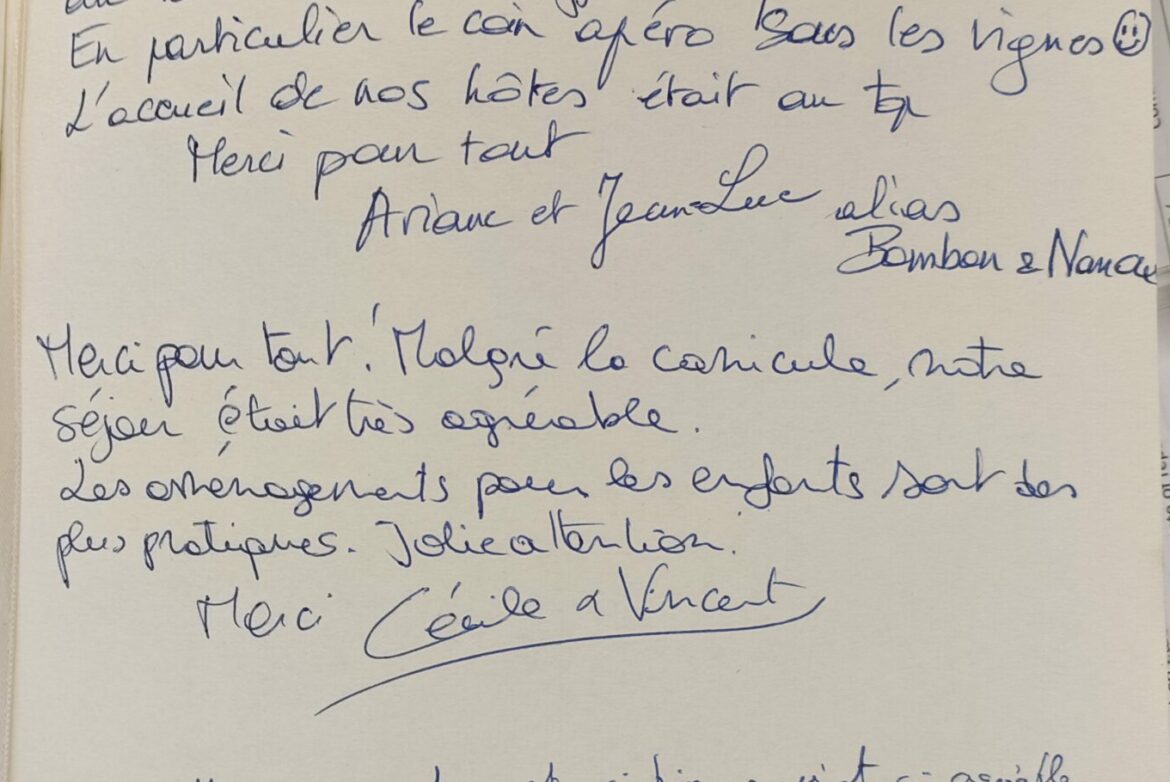 En particulier le coin apéro sous les vignes
L'accueil de nos hôtes était au top
Merci pour tout
Ariane et Jean-Luc alias
Bombon & Nanou
Merci pour tout ! Malgré la canicule, notre
séjour était très agréable.
Les aménagements pour les enfants sont des
plus pratiques. Jolie attention.
Merci Cécile & Vincent